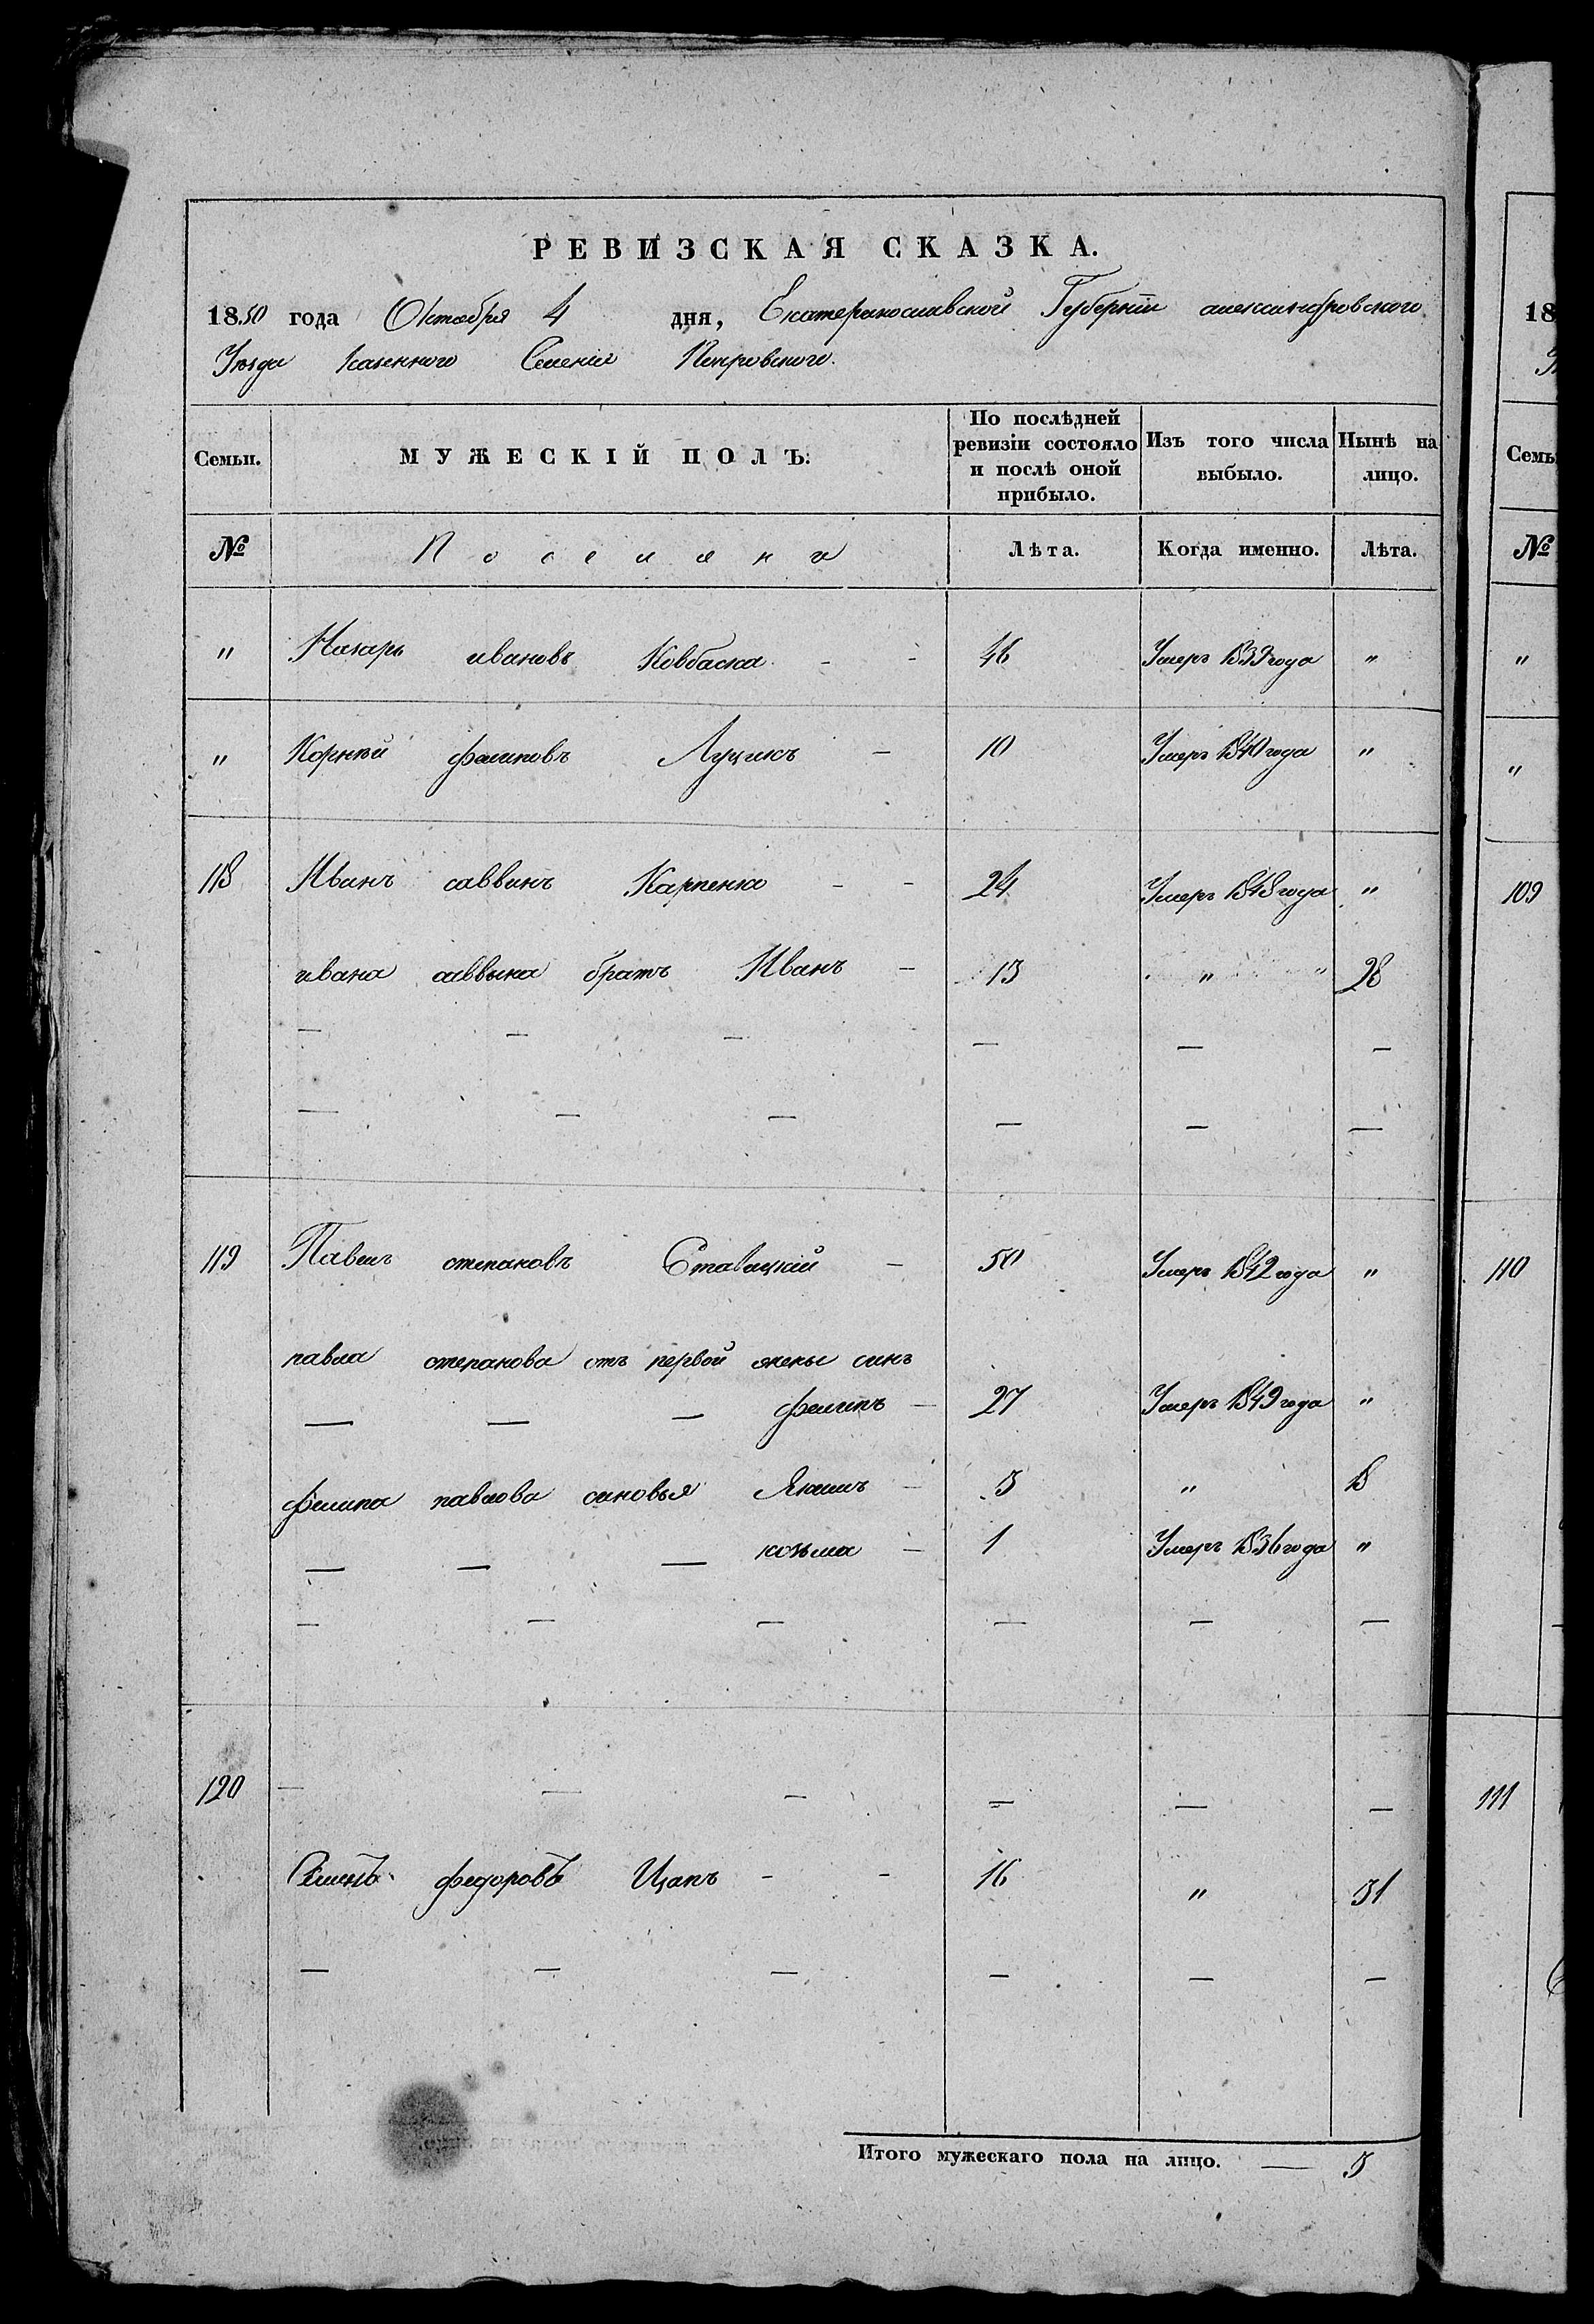 РЕВИЗСКАЯ СКАЗКА.
1850 года Октября 4 дня, Екатеринославской Губерніи александровского
Уезда казенного Селенія Покровского.
Семьи. МУЖЕСКІЙ ПОЛЪ: По послѣдней ревизіи состояло и послѣ оной прибыло. Изъ того числа выбыло. Нынѣ на лицо.
№ Поселяни Лѣта. Когда именно. Лѣта.
" Назаръ ивановъ Ковбаска - - 46 Умеръ 1839 года "
" Корнѣй филиповъ Луцикъ - 10 Умеръ 1840 года "
118 Иванъ саввинъ Карпенко - - 24 Умеръ 1848 года "
ивана саввына братъ Иванъ - 13 " " 28
— — — — — —
— — — — — —
119 Павелъ степановъ Ставицкій - 50 Умеръ 1842 года "
павла степанова отъ первой жены синъ
— — — филипъ - 27 Умеръ 1849 года "
филипа павлова синовья Якимъ - 3 " 18
— — — козьма - 1 Умеръ 1836 года "
— — — — — —
120 — — — — — —
Семенъ федоровъ Цапъ - - 16 " 31
— — — — — —
Итого мужескаго пола на лицо. — 3
18
Семь
№
"
"
109
110
111